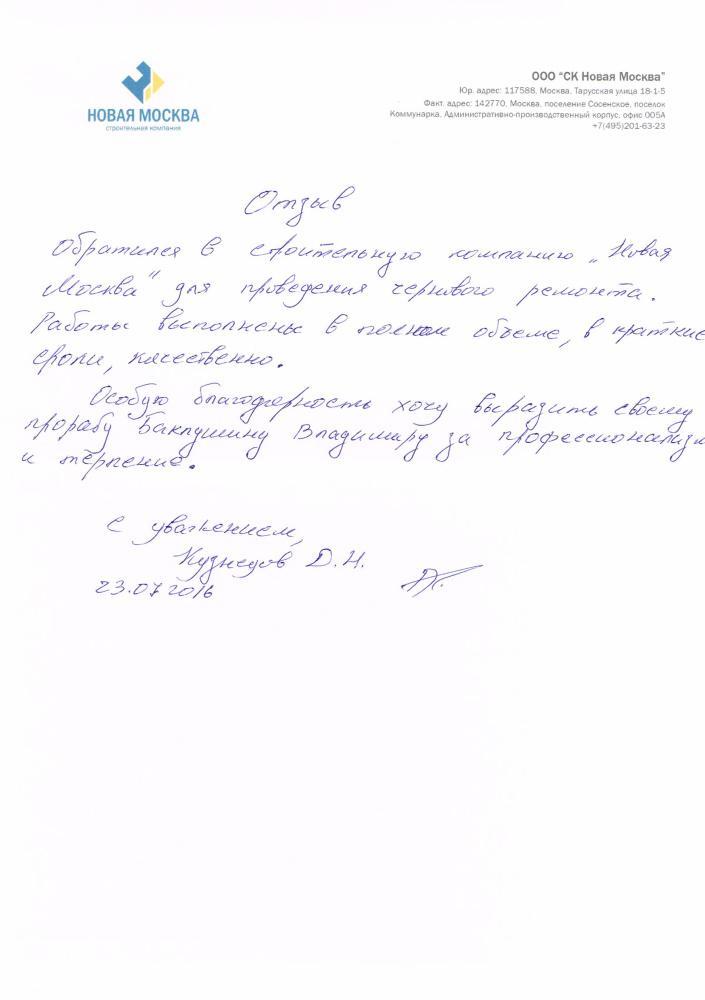 НОВАЯ МОСКВА
строительная компания
ООО "СК Новая Москва"
Юр. адрес: 117588, Москва, Тарусская улица 18-1-5
Факт. адрес: 142770, Москва, поселение Сосенское, поселок
Коммунарка, Административно-производственный корпус, офис 005А
+7(495)201-63-23
Отзыв
Обратился в строительную компанию „Новая
Москва" для проведения чернового ремонта.
Работы выполнены в полном объеме, в краткие
сроки, качественно.
Особую благодарность хочу выразить своему
прорабу Баклушину Владимиру за профессионализм
и терпение.
С уважением,
Кузнецов Д.Н.
23.07 2016